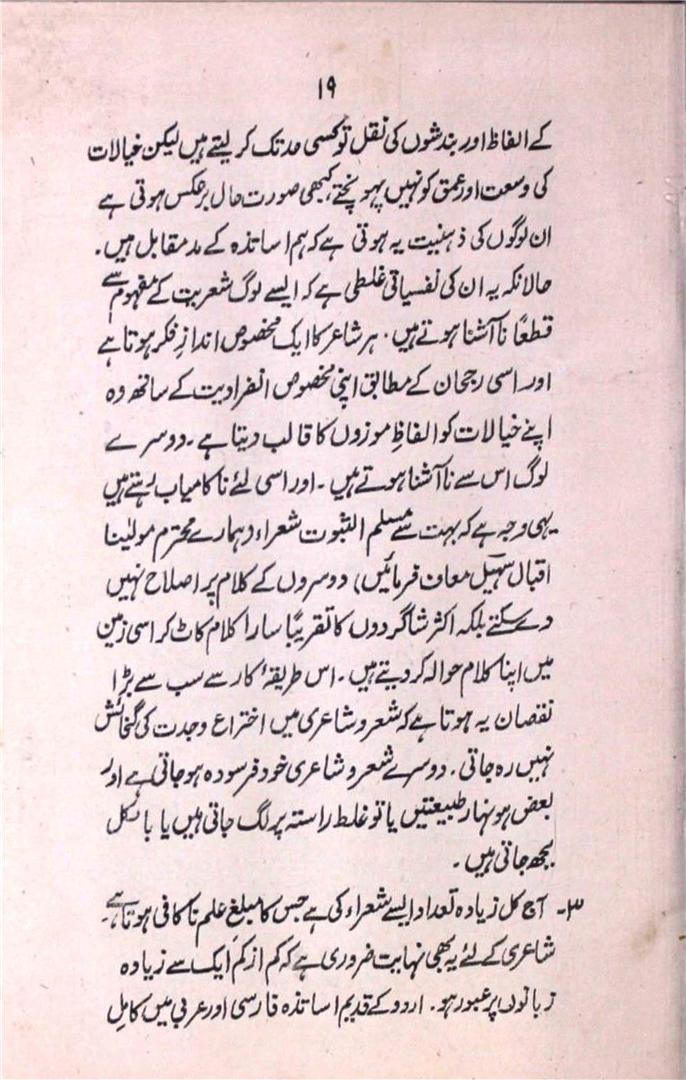 ۱۹
کے الفاظ اور بندشوں کی نقل تو کسی حد تک کر لیتے ہیں لیکن خیالات
کی وسعت اور عمق کو نہیں پہونچتے، کبھی صورت حال برعکس ہوتی ہے
ان لوگوں کی ذہنیت یہ ہوتی ہے کہ ہم اساتذہ کے مد مقابل ہیں۔
حالانکہ یہ ان کی نفسیاتی غلطی ہے کہ ایسے لوگ شعریت کے مفہوم سے
قطعاً ناآشنا ہوتے ہیں۔ ہر شاعر کا ایک مخصوص اندازِ فکر ہوتا ہے
اور اسی رجحان کے مطابق اپنی مخصوص انفرادیت کے ساتھ وہ
اپنے خیالات کو الفاظِ موزوں کا قالب دیتا ہے۔ دوسرے
لوگ اس سے ناآشنا ہوتے ہیں۔ اور اسی لئے ناکامیاب رہتے ہیں
یہی وجہ ہے کہ بہت سے مسلم الثبوت شعراء (ہمارے محترم مولینا
اقبال سہیل معاف فرمائیں) دوسروں کے کلام پر اصلاح نہیں
دے سکتے بلکہ اکثر شاگردوں کا تقریباً سارا کلام کاٹ کر اسی زمین
میں اپنا کلام حوالہ کر دیتے ہیں۔ اس طریقۂ کار سے سب سے بڑا
نقصان یہ ہوتا ہے کہ شعر و شاعری میں اختراع وجدت کی گنجائش
نہیں رہ جاتی۔ دوسرے شعر و شاعری خود فرسودہ ہو جاتی ہے اور
بعض ہونہار طبیعتیں یا تو غلط راستہ پر لگ جاتی ہیں یا بالکل
بجھ جاتی ہیں۔
۳۔ آج کل زیادہ تعداد ایسے شعراء کی ہے جس کا مبلغ علم ناکافی ہوتا ہے۔
شاعری کے لئے یہ بھی نہایت ضروری ہے کہ کم از کم ایک سے زیادہ
زبانوں پر عبور ہو۔ اردو کے قدیم اساتذہ فارسی اور عربی میں کامل